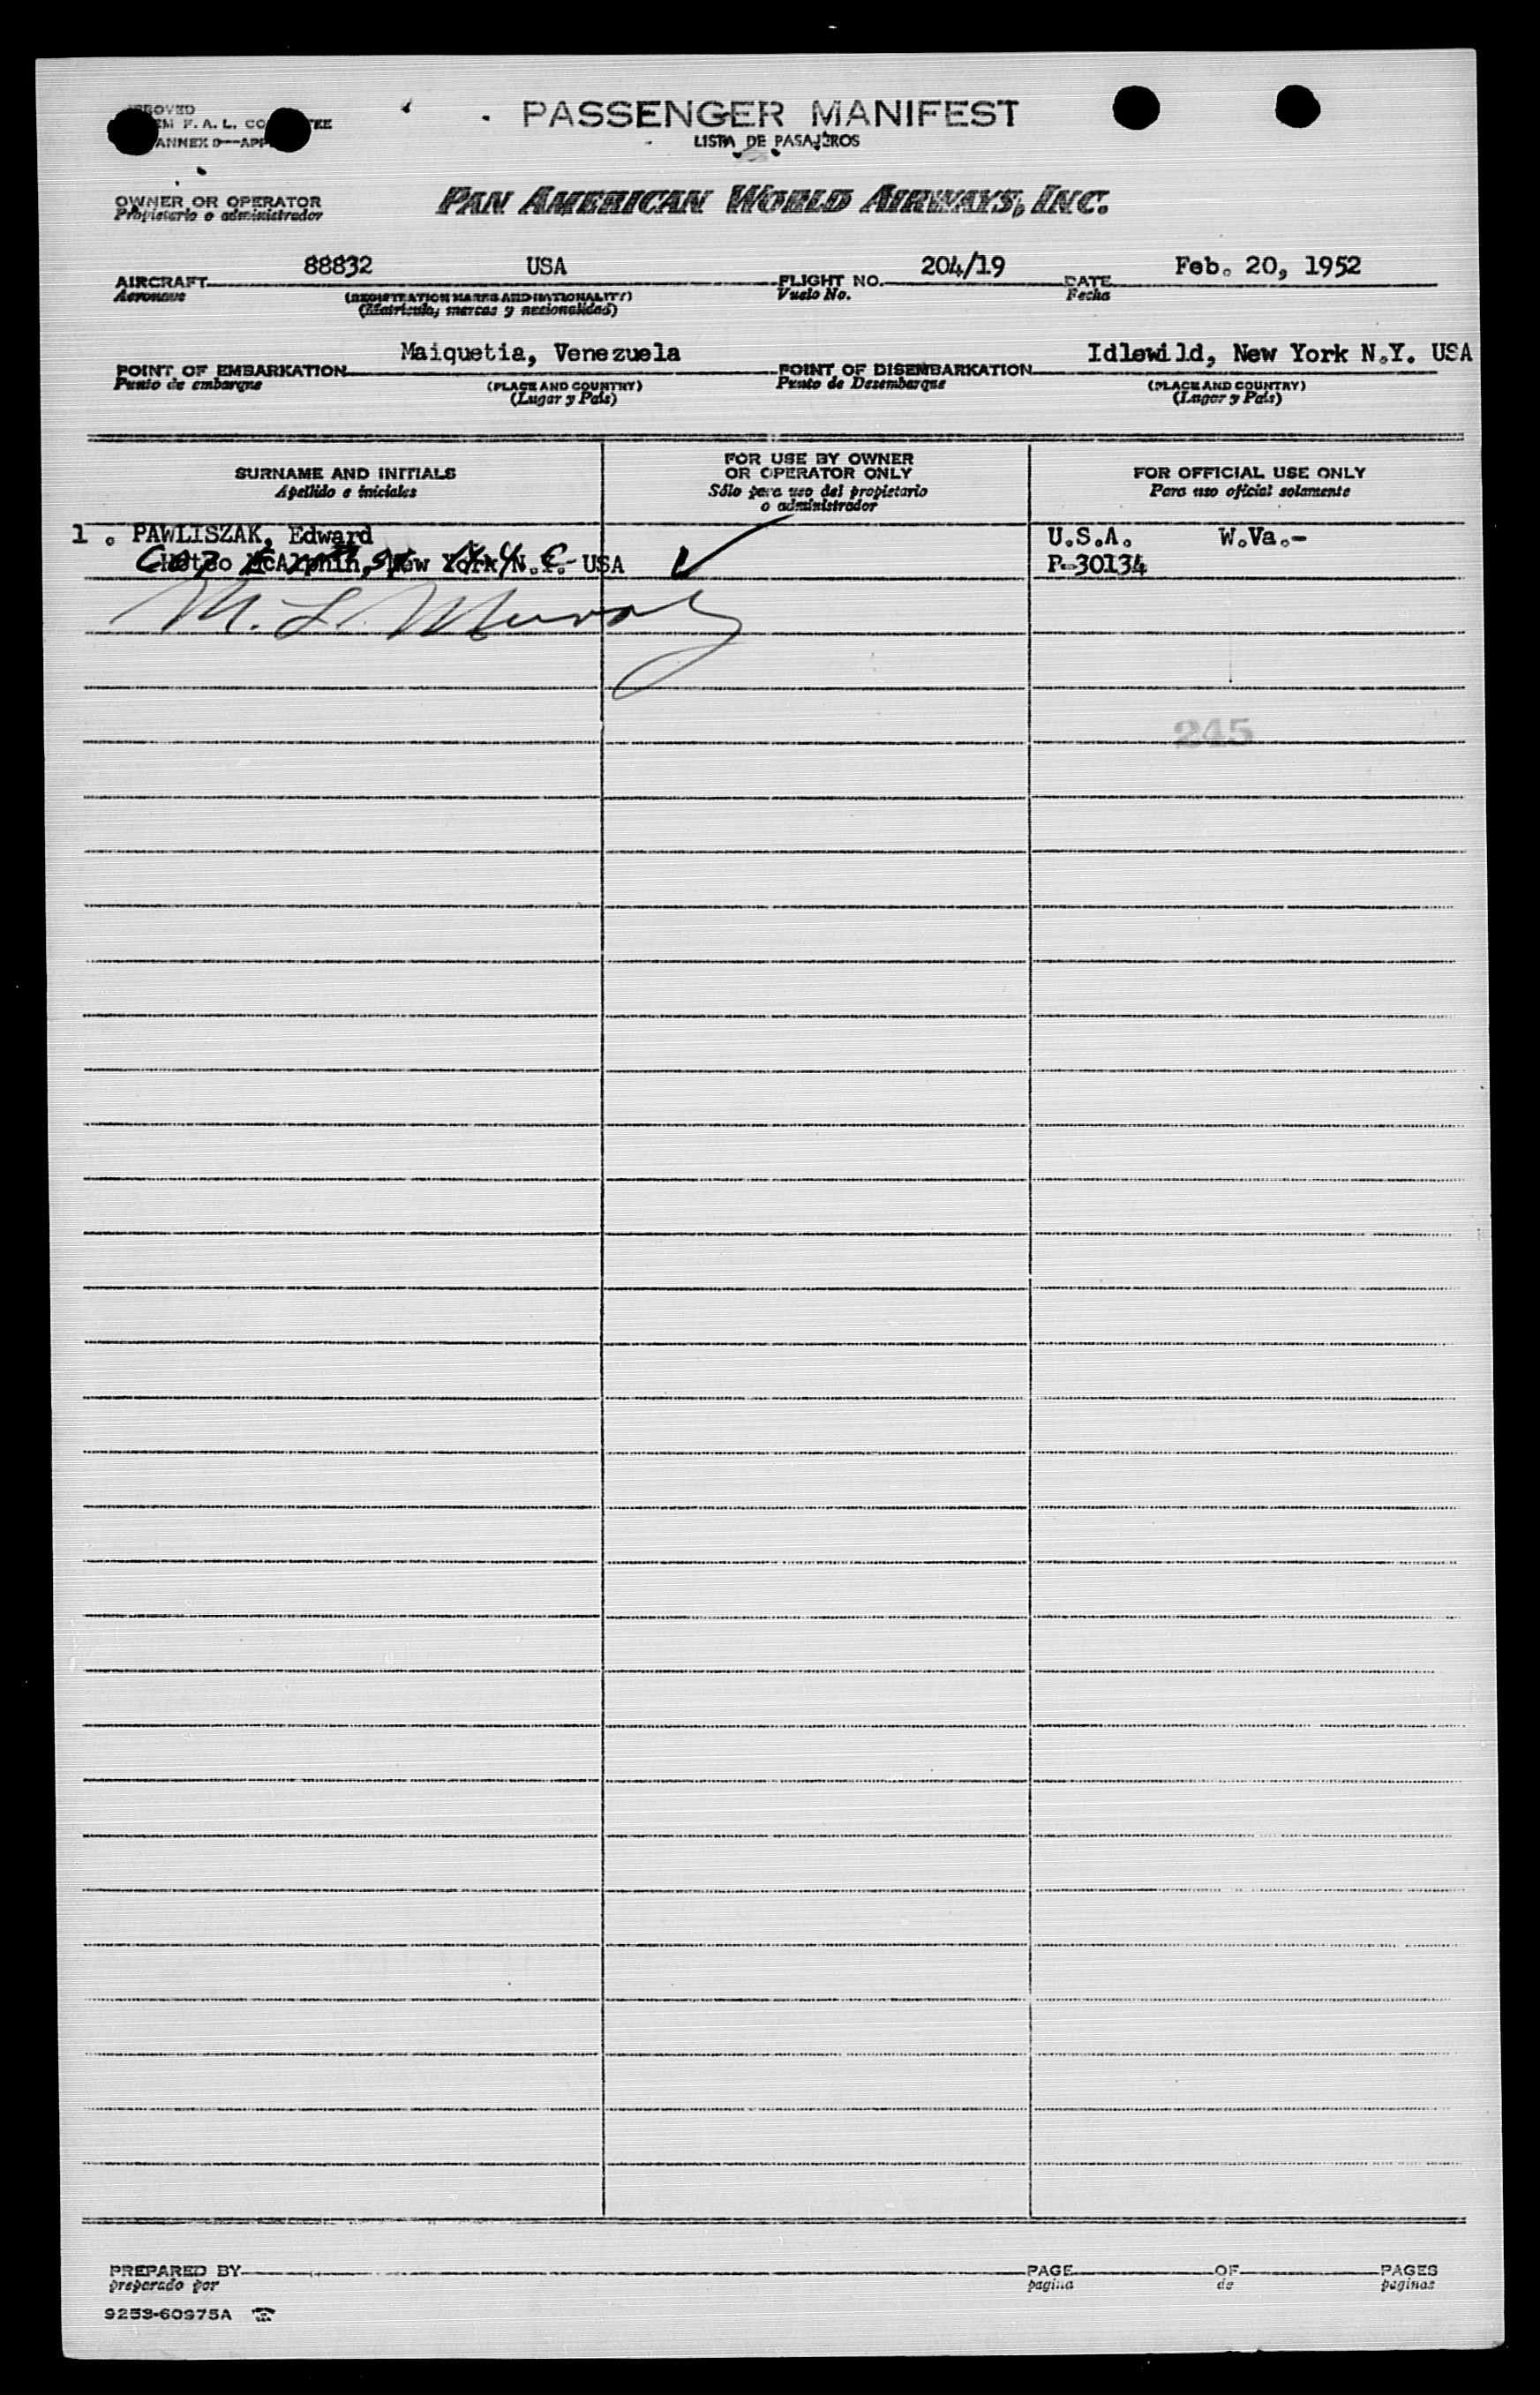 PASSENGER MANIFEST
LISTA DE PASAJEROS
F. A. L.
ANNEX 9—
OWNER OR OPERATOR
Propietario o administrador
PAN AMERICAN WORLD AIRWAYS, INC.
AIRCRAFT 88832 USA FLIGHT NO. 204/19 DATE Feb. 20, 1952
Aeronave (REGISTRATION MARKS AND NATIONALITY) Vuelo No. Fecha
(Matricula, marcas y nacionalidad)
POINT OF EMBARKATION Maiquetia, Venezuela POINT OF DISEMBARKATION Idlewild, New York N.Y. USA
Punto de embarque (PLACE AND COUNTRY) Punto de Desembarque (PLACE AND COUNTRY)
(Lugar y País) (Lugar y País)
SURNAME AND INITIALS
Apellido e iniciales
FOR USE BY OWNER
OR OPERATOR ONLY
Sólo para uso del propietario
o administrador
FOR OFFICIAL USE ONLY
Para uso oficial solamente
1 . PAWLISZAK, Edward U.S.A. W.Va.-
McAlphin, New York N.Y. USA P-30134
M. L.
245
PREPARED BY PAGE OF PAGES
preparado por pagina de paginas
9253-60975A